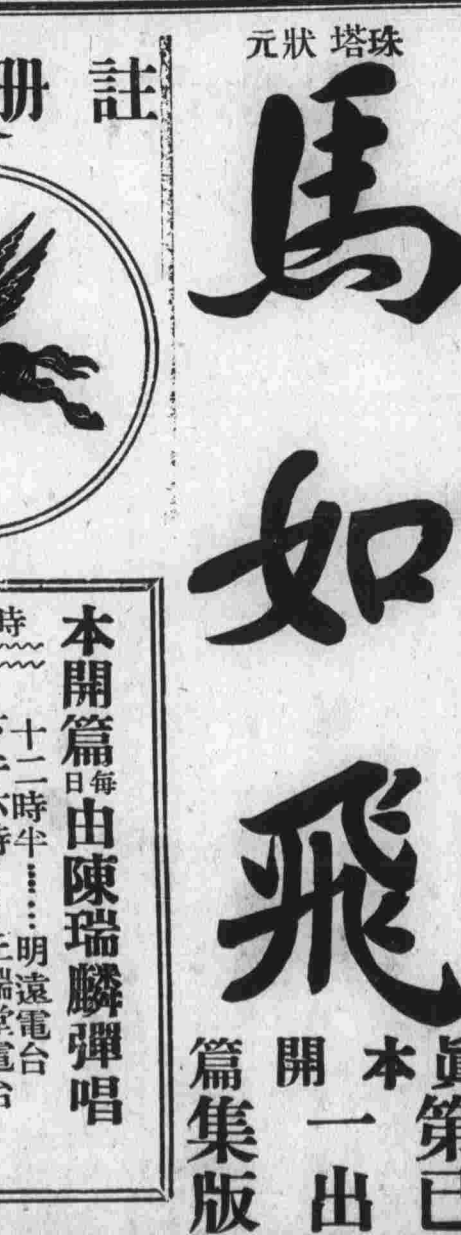 珠塔狀元
馬如飛
眞本開篇
第一集
已出版
註冊
本開篇每日由陳瑞麟彈唱
時
十二時半……明遠電台